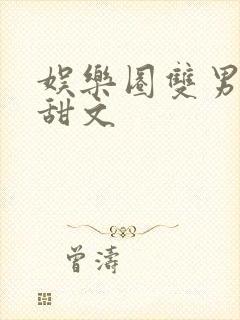 娛樂圈雙男
甜文
曾濤